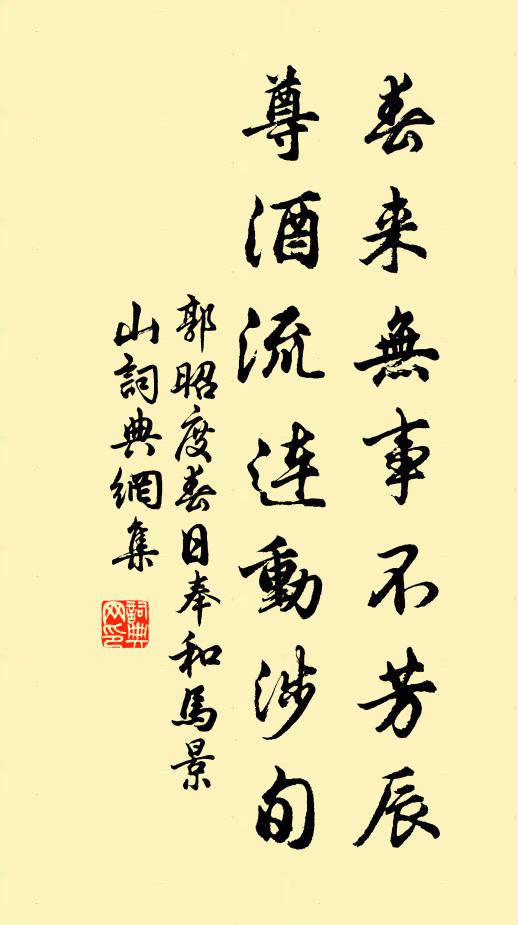 春来無事不芳辰
尊酒流連動涉旬
郭昭度春日奉和馬景
山詞典網集
詞典
网印